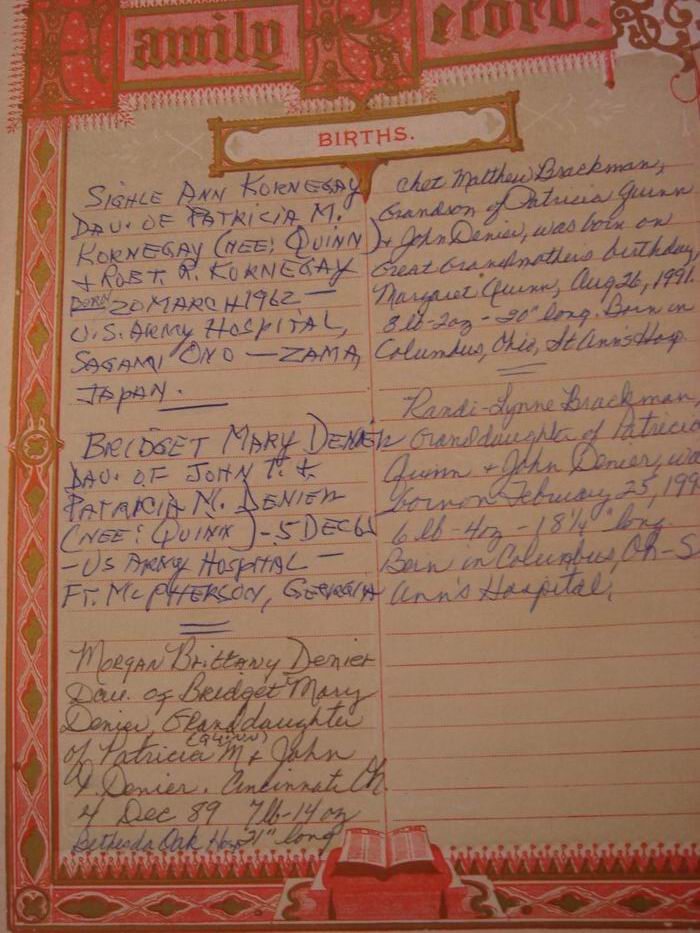 Family Record.
BIRTHS.
SIGHLE ANN KORNEGAY
DAU. OF PATRICIA M.
KORNEGAY (NEE: QUINN)
+ ROBT. R. KORNEGAY
BORN 20 MARCH 1962 —
U.S. ARMY HOSPITAL,
SAGAMI ONO — ZAMA,
JAPAN.
BRIDGET MARY DENIER
DAU. OF JOHN +
PATRICIA M. DENIER
(NEE: QUINN) - 5 DEC
- US ARMY HOSPITAL —
FT. McPHERSON, GEORGIA
Morgan Brittany Denier
Dau. of Bridget Mary
Denier, Granddaughter
(QUINN)
of Patricia M + John
Denier. Cincinnati Oh.
4 Dec 89 7lb-14oz
Bethesda Oak Hosp 21" long
Chet Matthew Brackman,
Grandson of Patricia Quinn
+ John Denier, was born on
Great Grandmothers birthday,
Margaret Quinn, Aug 26, 1991.
8 lb-2oz - 20" long. Born in
Columbus, Ohio, St Ann's Hosp.
Randi-Lynne Brackman,
Granddaughter of Patricia
Quinn + John Denier, wa
born on February 25, 199
6 lb-4oz - 18 1/4" long
Born in Columbus, Oh-S
Ann's Hospital.